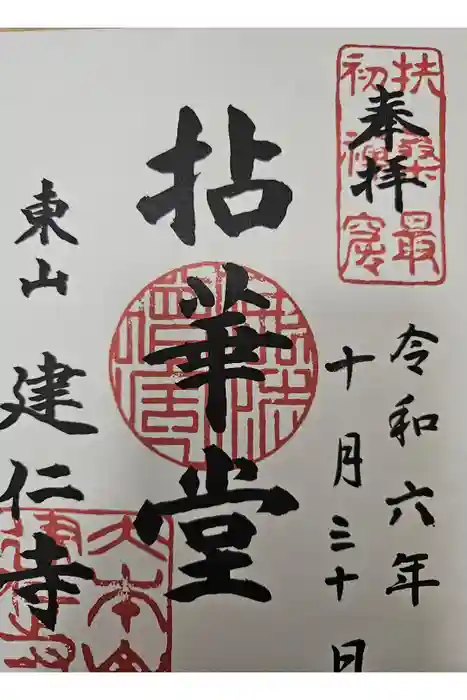 奉拝
扶桑最
初禅窟
令和六年
十月三十日
拈華堂
東山 建仁寺
大本山
建仁寺